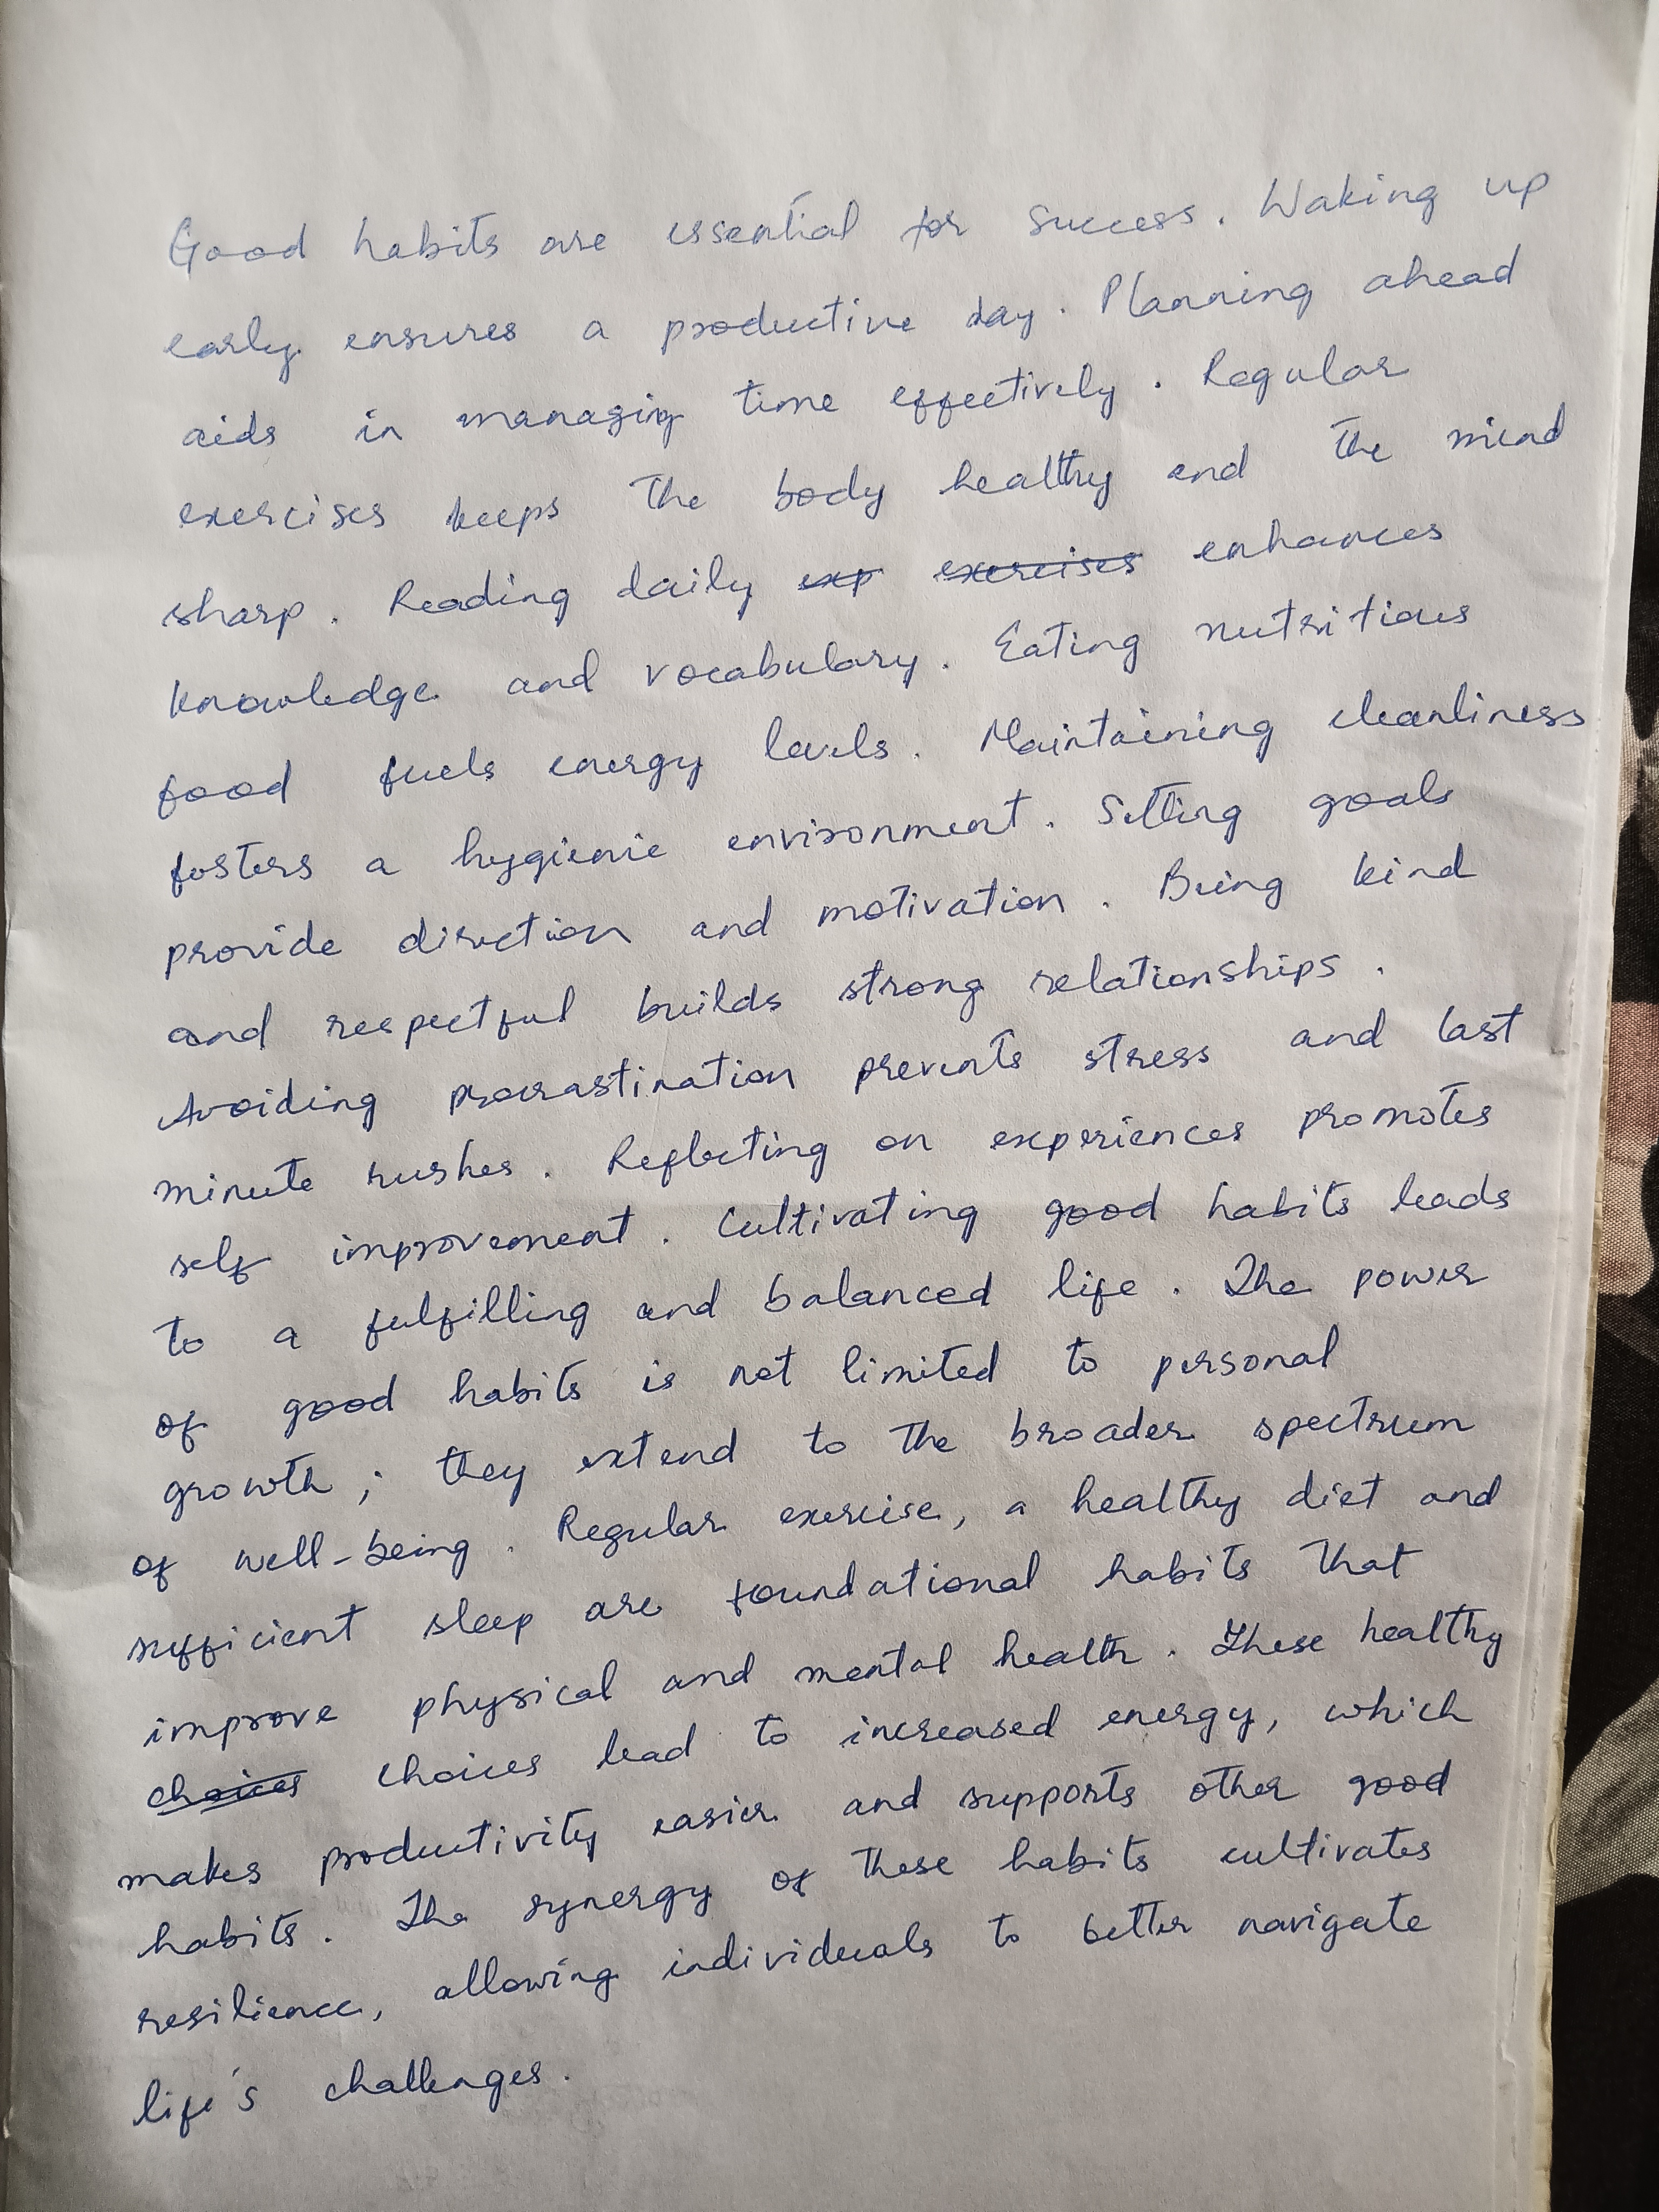 Good habits are essential for success. Waking up
early ensures a productive day. Planning ahead
aids in managing time effectively. Regular
exercises keeps the body healthy and the mind
sharp. Reading daily exp exercises enhances
knowledge and vocabulary. Eating nutritious
food fuels energy levels. Maintaining cleanliness
fosters a hygienic environment. Setting goals
provide direction and motivation. Being kind
and respectful builds strong relationships.
Avoiding procrastination prevents stress and last
minute rushes. Reflecting on experiences promotes
self improvement. Cultivating good habits leads
to a fulfilling and balanced life. The power
of good habits is not limited to personal
growth; they extend to the broader spectrum
of well-being. Regular exercise, a healthy diet and
sufficient sleep are foundational habits that
improve physical and mental health. These healthy
choices choices lead to increased energy, which
makes productivity easier and supports other good
habits. The synergy of these habits cultivates
resilience, allowing individuals to better navigate
life's challenges.